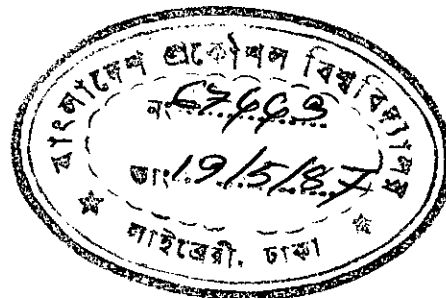 বাংলাদেশ প্রকৌশল বিশ্ববিদ্যালয়
নং 67443
তাং 19/5/87
লাইব্রেরী, ঢাকা